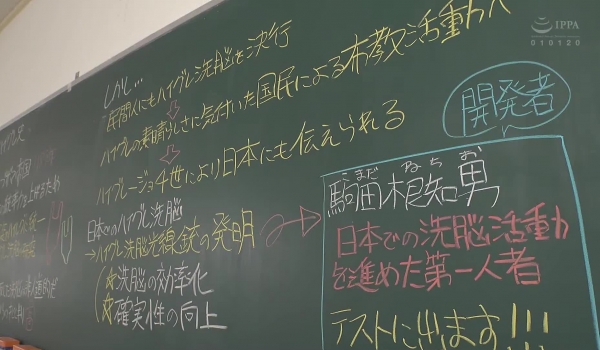 IPPA
010120
しかし…
民間人にもハイグレ洗脳を決行
ハイグレの素晴らしさに気付いた国民による布教活動へ
ハイグレージョ4世により日本にも伝えられる
日本でのハイグレ洗脳
→ハイグレ洗脳光線銃の発明
☆洗脳の効率化
☆確実性の向上
開発者
こまだ ねちお
駒田根知勇
日本での洗脳活動
を進めた第一人者
テストに出ます!!!